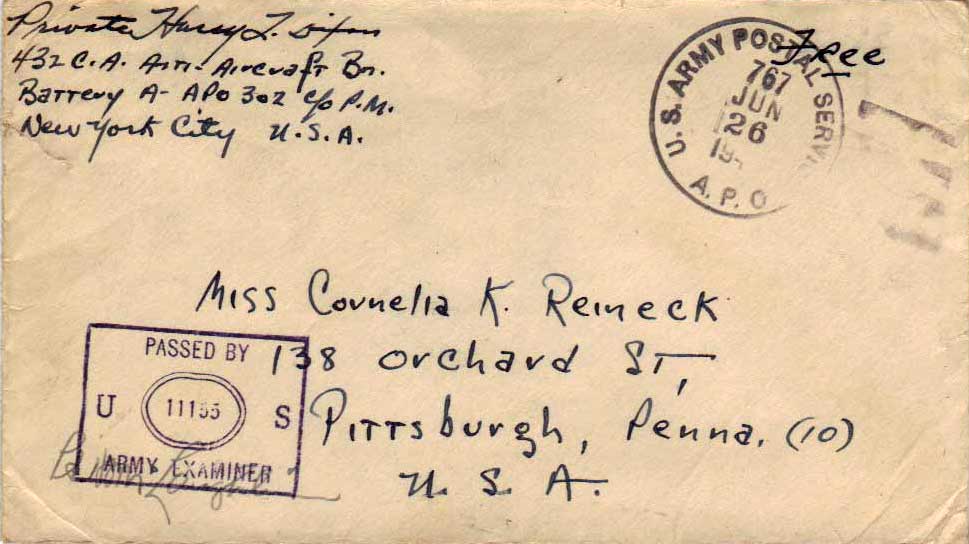 Private Harry L. Dixon
432 C.A. Anti-Aircraft Bn.
Battery A- APO 302 c/o P.M.
New York City U.S.A.
Free
U.S. ARMY POSTAL SERVICE
767
JUN
26
19
A.P.O
Miss Cornelia K. Reineck
138 Orchard St,
Pittsburgh, Penna. (10)
U. S. A.
PASSED BY
U 11155 S
ARMY EXAMINER